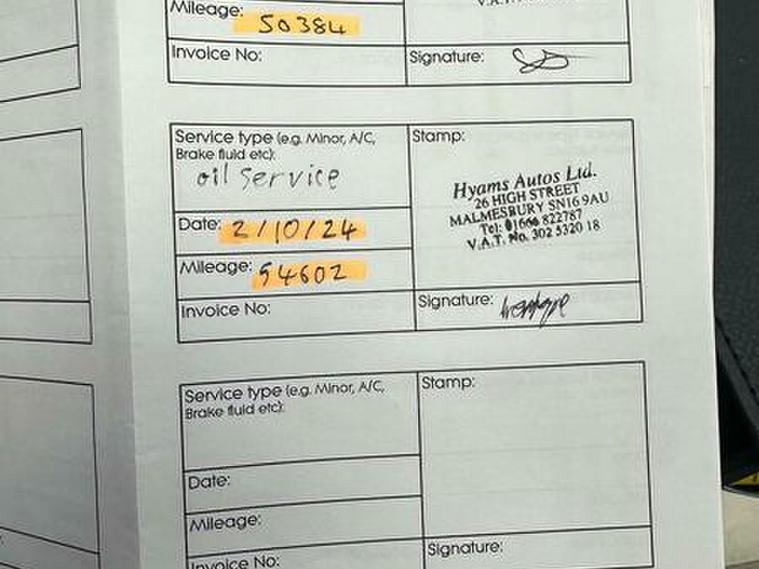 Mileage: 50384
V.A.T.
Invoice No:
Signature:
Service type (e.g. Minor, A/C,
Brake fluid etc):
oil service
Stamp:
Hyams Autos Ltd.
26 HIGH STREET
MALMESBURY SN16 9AU
Tel: 01666 822787
V.A.T. No. 302 5320 18
Date: 2/10/24
Mileage: 54602
Invoice No:
Signature:
Service type (e.g. Minor, A/C,
Brake fluid etc):
Stamp:
Date:
Mileage:
Invoice No:
Signature: